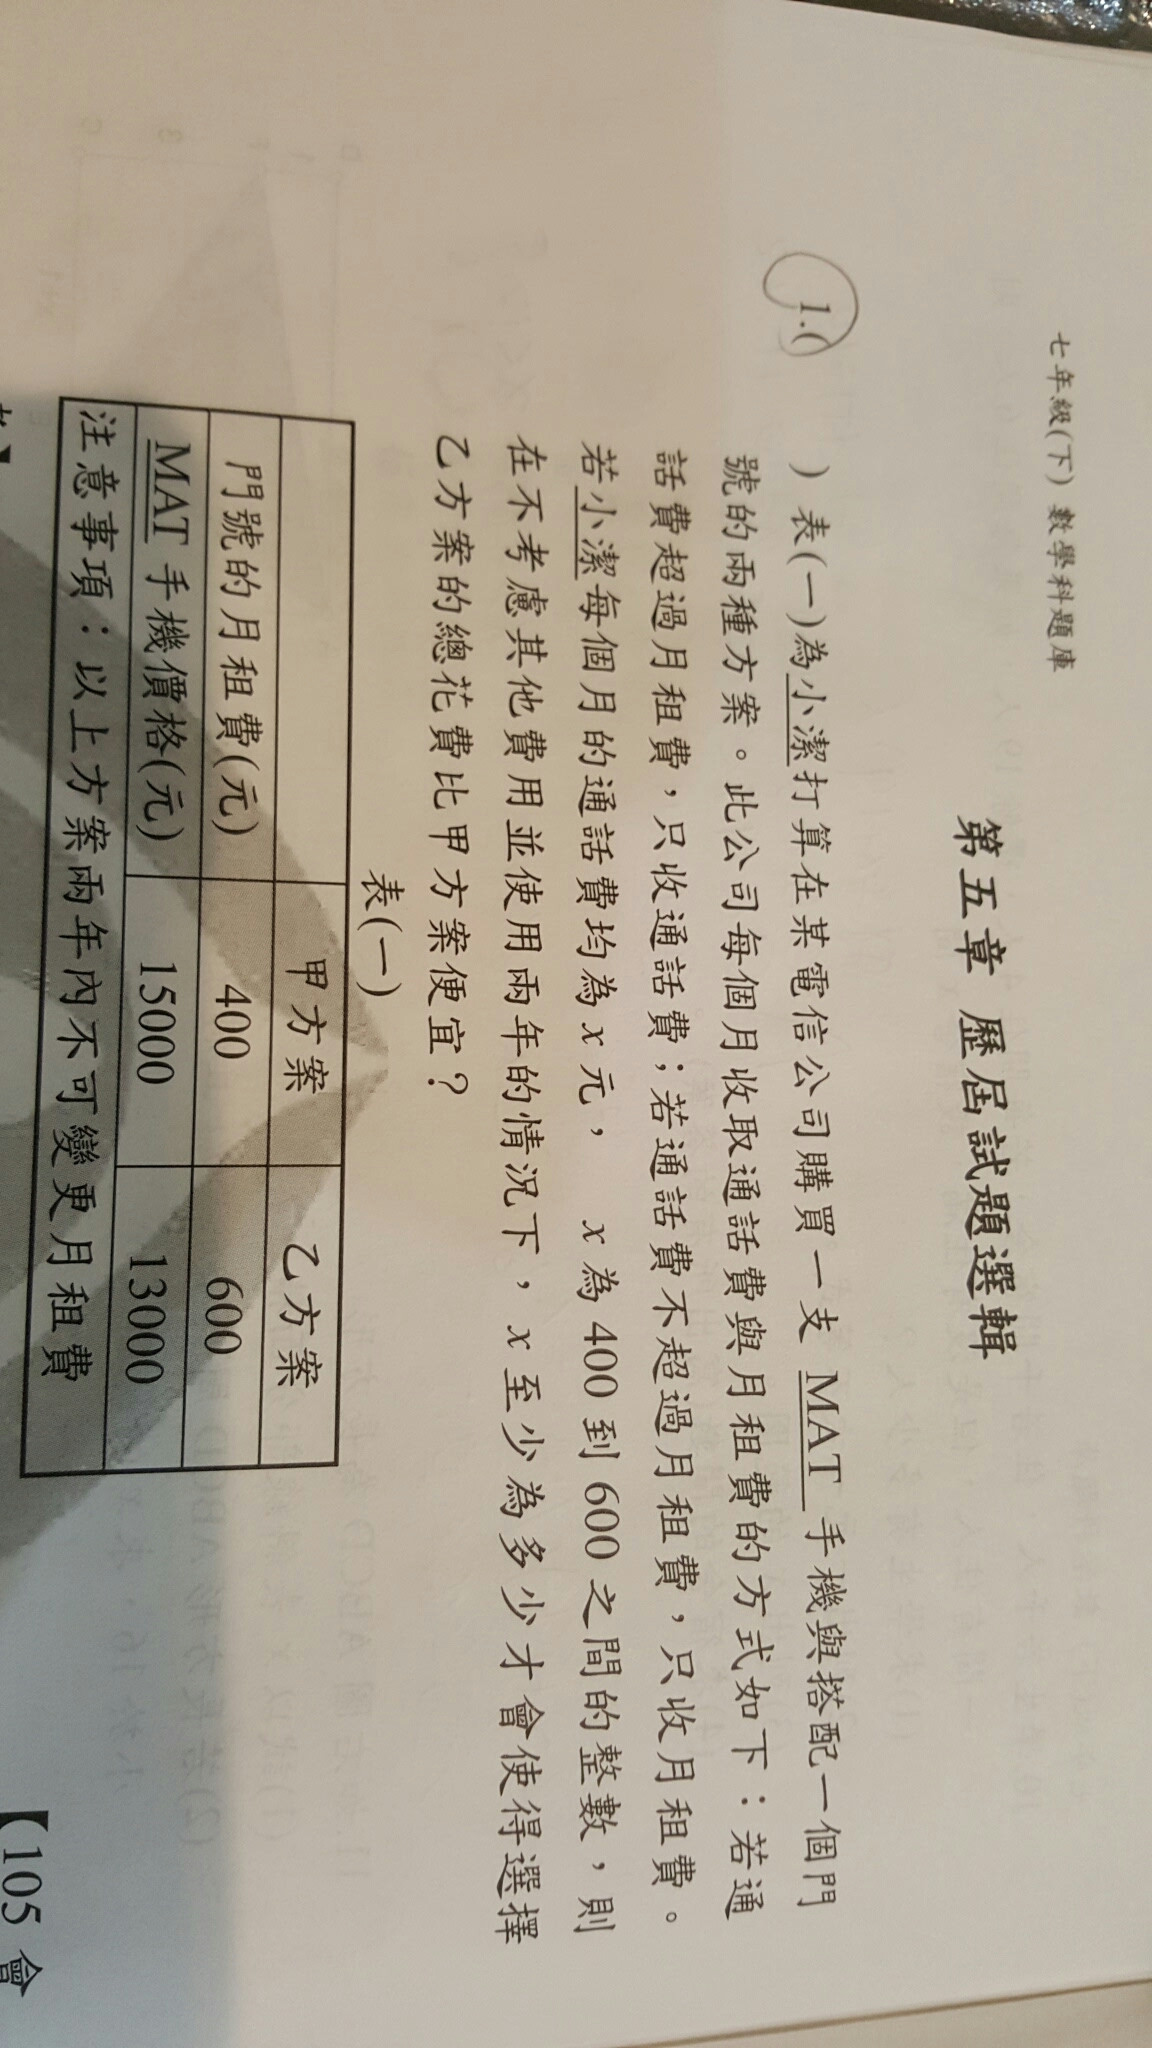 七年級(下) 數學科題庫
第五章 歷屆試題選輯
1.(　　) 表(一)為小潔打算在某電信公司購買一支 MAT 手機與搭配一個門
號的兩種方案。此公司每個月收取通話費與月租費的方式如下：若通
話費超過月租費，只收通話費；若通話費不超過月租費，只收月租費。
若小潔每個月的通話費均為 x 元， x 為 400 到 600 之間的整數，則
在不考慮其他費用並使用兩年的情況下，x 至少為多少才會使得選擇
乙方案的總花費比甲方案便宜？
表(一)
甲方案 乙方案
門號的月租費(元) 400 600
MAT 手機價格(元) 15000 13000
注意事項：以上方案兩年內不可變更月租費
【105 會